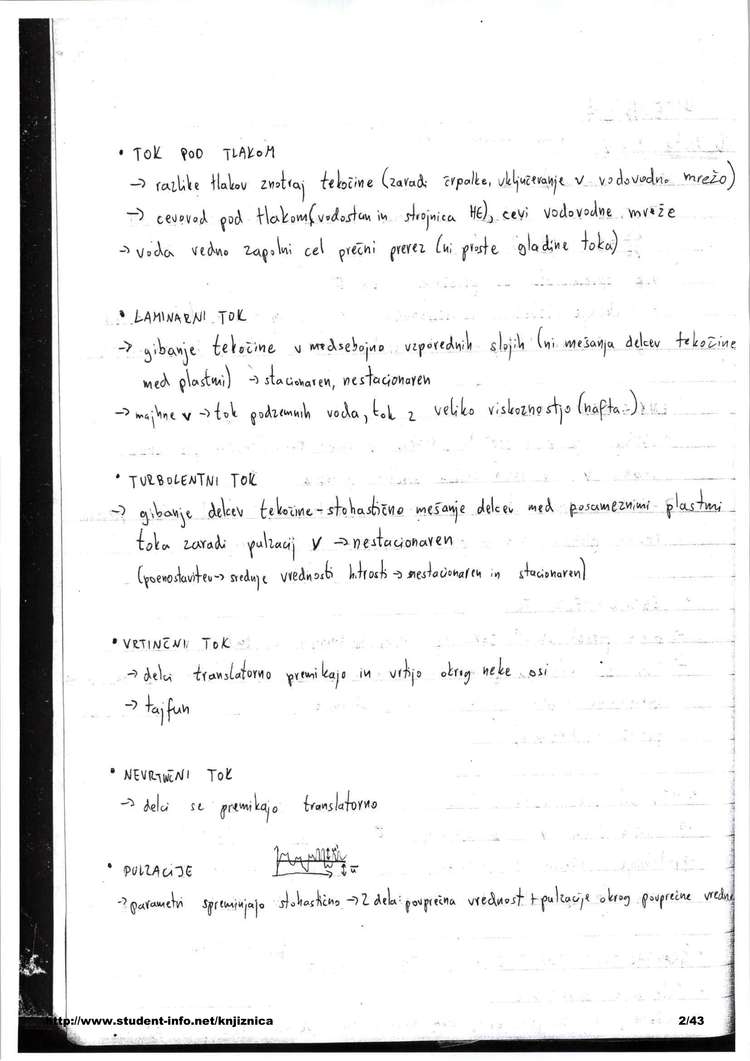 • TOK POD TLAKOM
→ razlike tlakov znotraj tekočine (zaradi črpalke, vključevanje v vodovodno mrežo)
→ cevovod pod tlakom (vodostan in strojnica HE), cevi vodovodne mreže
→ voda vedno zapolni cel prečni prerez (ni proste gladine toka)
• LAMINARNI TOK
→ gibanje tekočine v medsebojno vzporednih slojih (ni mešanja delcev tekočine
med plastmi) → stacionaren, nestacionaren
→ majhne v → tok podzemnih voda, tok z veliko viskoznostjo (nafta..)
• TURBOLENTNI TOK
→ gibanje delcev tekočine - stohastično mešanje delcev med posameznimi plastmi
toka zaradi pulzacij v → nestacionaren
(poenostavitev → srednje vrednosti hitrosti → nestacionaren in stacionaren)
• VRTINČNI TOK
→ delci translatorno premikajo in vrtijo okrog neke osi
→ tajfun
• NEVRTINČNI TOK
→ delci se premikajo translatorno
• PULZACIJE
→ parametri spreminjajo stohastično → 2 dela: povprečna vrednost + pulzacije okrog povprečne vredno
http://www.student-info.net/knjiznica 2/43